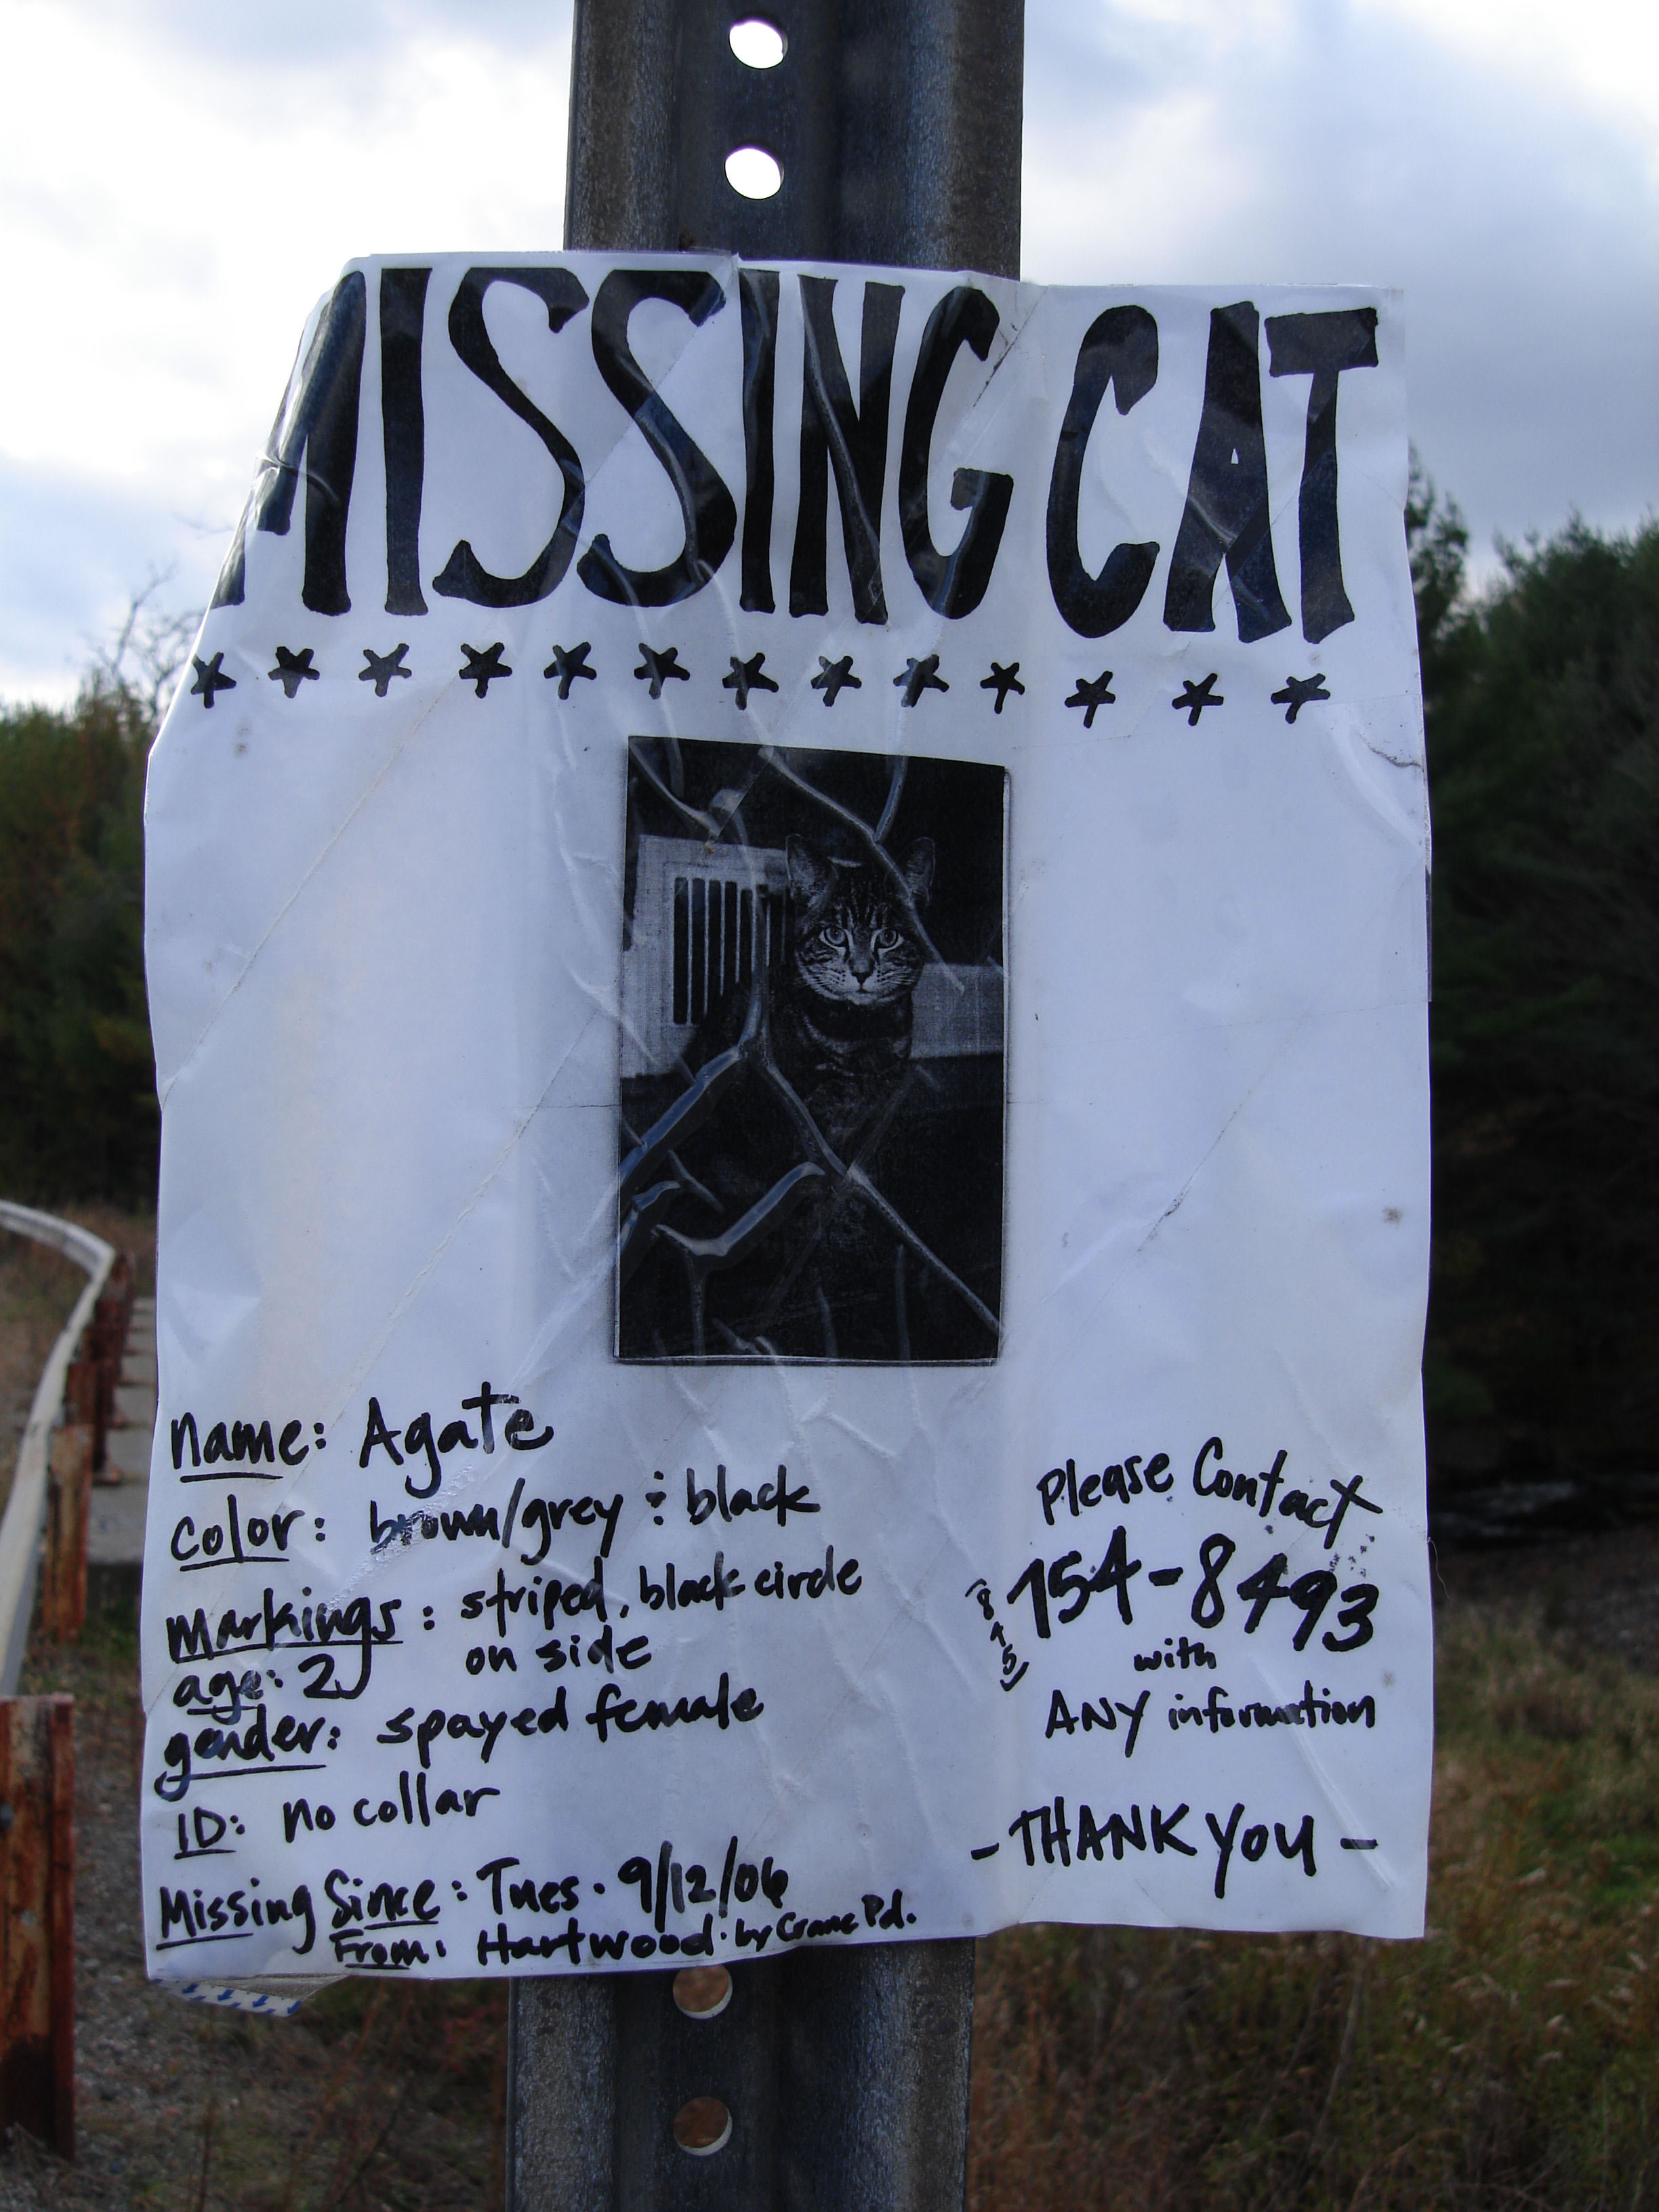 MISSING CAT
name: Agate
color: brown/grey & black
markings: striped, black circle
on side
age: 2
gender: spayed female
ID: no collar
Missing Since: Tues. 9/12/06
From: Hartwood. by Crane Pd.
Please Contact
(845) 754-8493
with
ANY information
- THANK YOU -